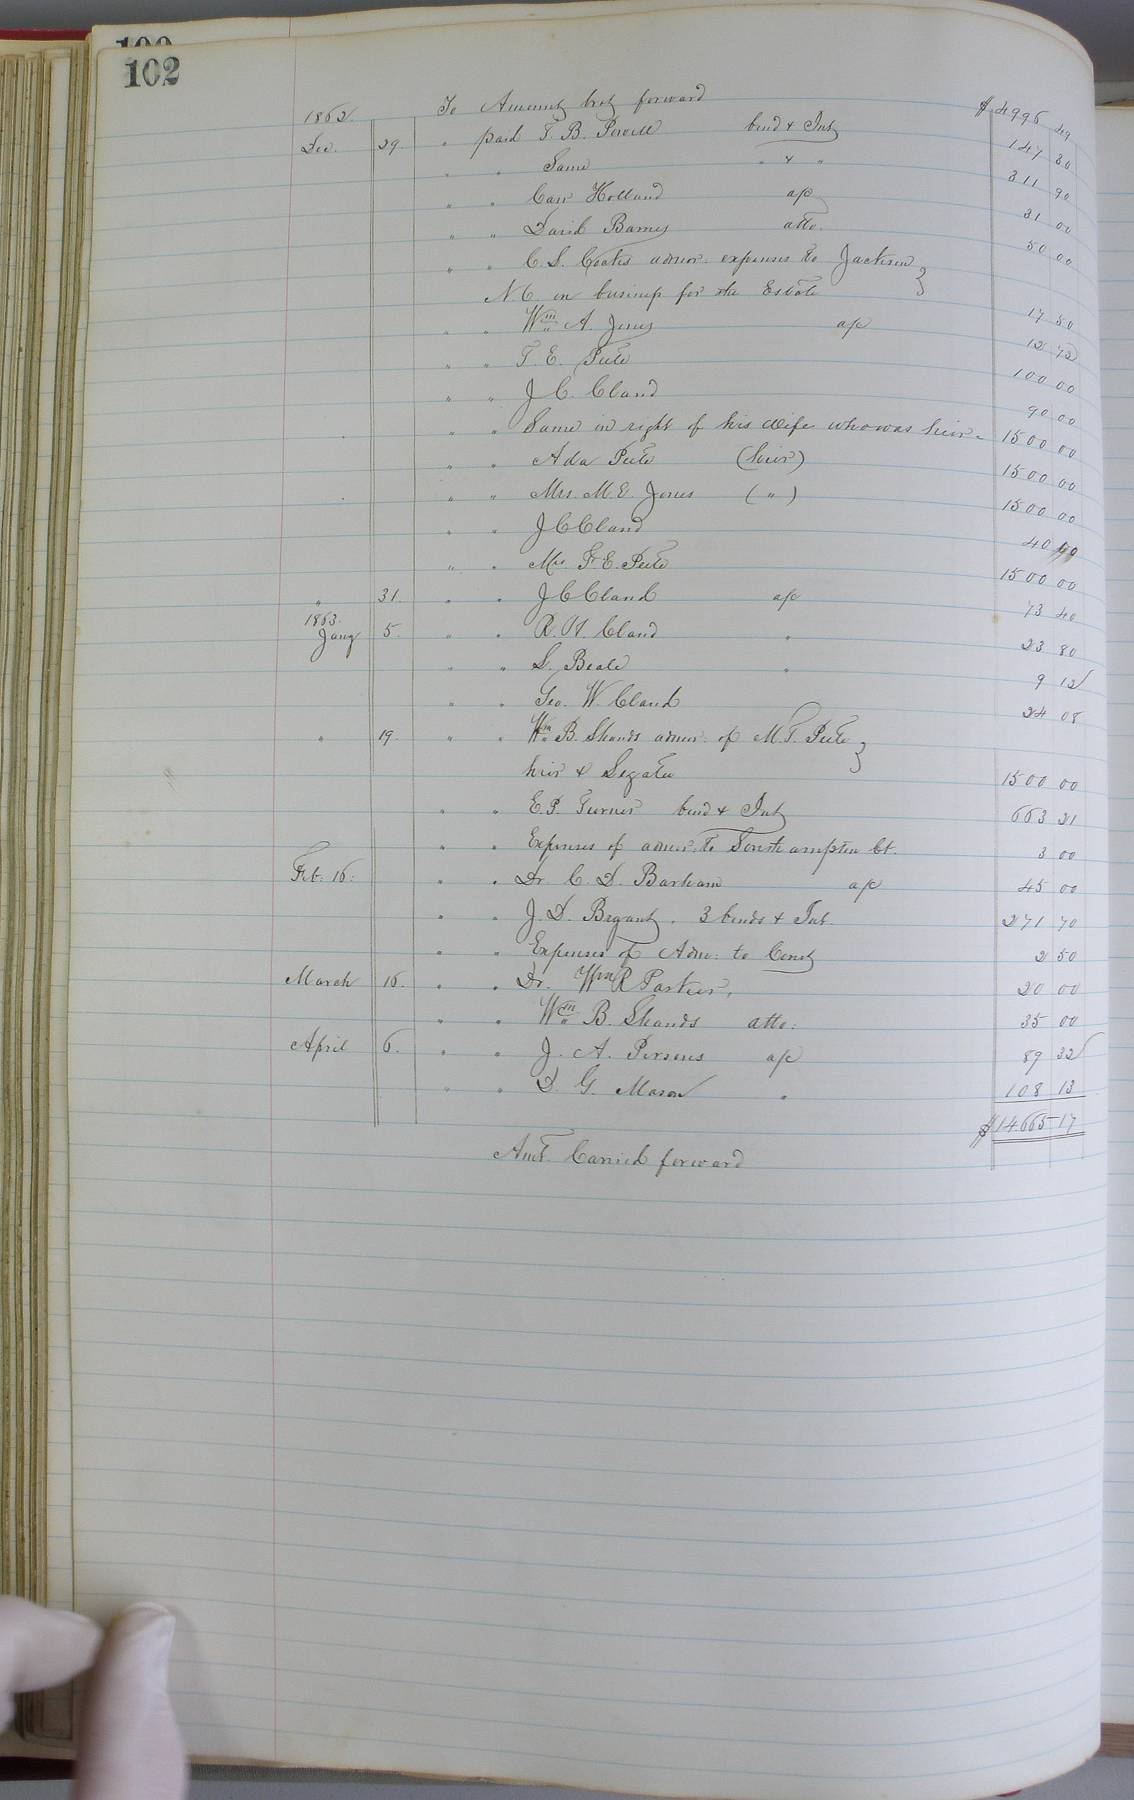 102
To Amount brot forward $4996 49
1862. Dec. 29. " paid T. B. Powell bond & Int 147 80
" " Same " & " 311 90
" " Carr Holland a/c 31 00
" " David Barnes atto. 50 00
" " C. S. Coates admor. expenses to Jackson
N. C. on business for the Estate 17 50
" " Wm A. Jones a/c 12 72
" " T. E. Peete 100 00
" " J. C. Cland 90 00
" " Same in right of his Wife who was heir 1500 00
" " Ada Peete (heir) 1500 00
" " Mrs. M. E. Jones ( " ) 1500 00
" " J C Cland 40 40
" " Mrs F. E. Peete 1500 00
" 31. " " J C Cland a/c 73 40
1863. Jany 5. " " R. H. Cland " 23 80
" " S. Beale " 9 12
" " Geo. W. Cland 24 08
" 19. " " Wm B. Shands admor. of M. T. Peete
heir & Legatee 1500 00
" " E. P. Turner bond & Int 663 21
" " Expenses of admor. to Southampton Ct. 3 00
Feb. 16. " " Dr. C. D. Barham a/c 45 00
" " J. D. Bryant. 3 bonds & Int. 271 70
" " Expenses of Admr. to Court 2 50
March 16. " " Dr. Wm R Parker, 20 00
" " Wm B. Shands atto. 35 00
April 6. " " J. A. Persons a/c 89 32
" " D. G. Mason " 108 13
$14665 17
Amt. Carried forward